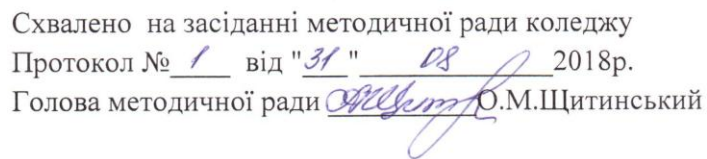 Схвалено на засіданні методичної ради коледжу
Протокол № 1 від "31" 08 2018р.
Голова методичної ради О.М.Щитинський